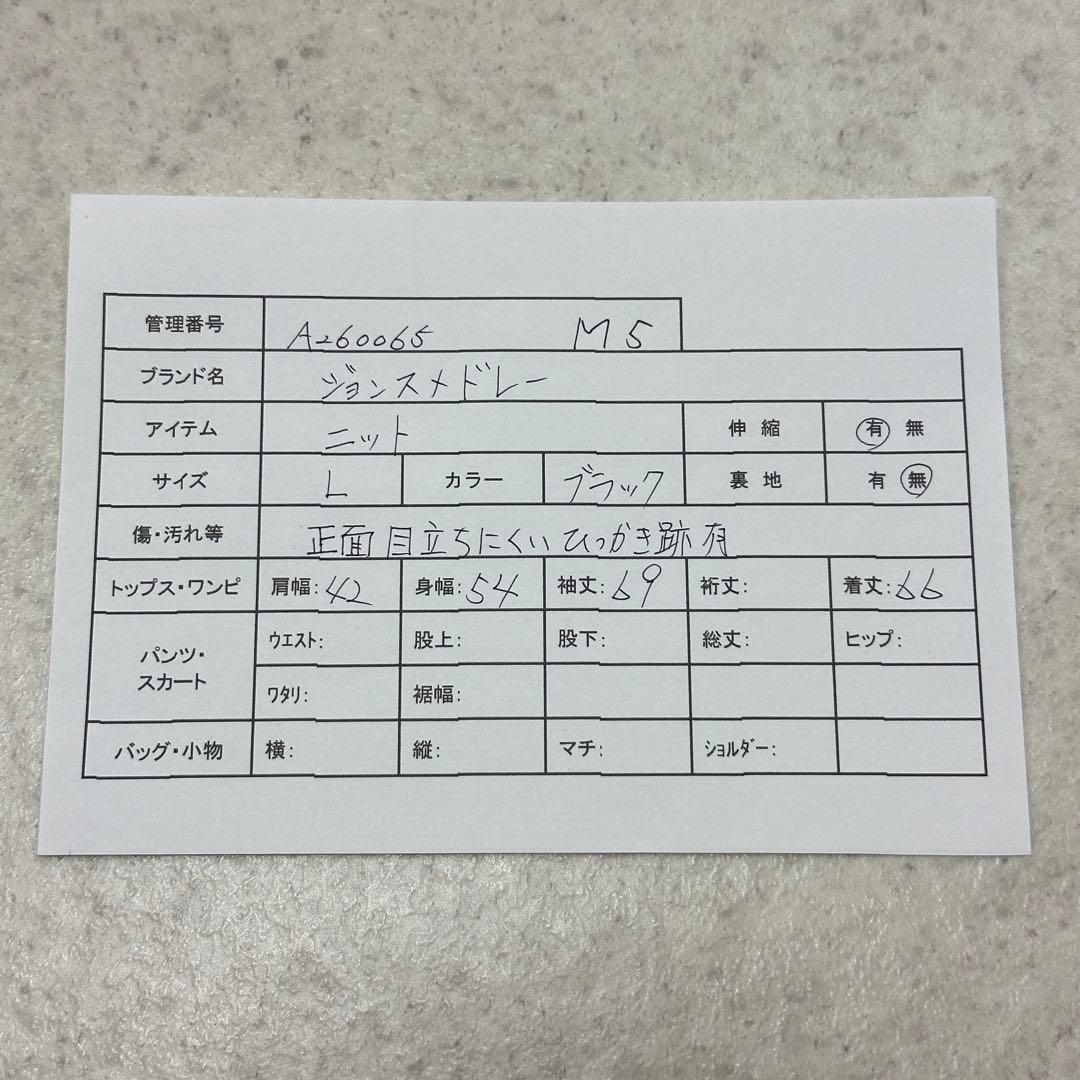 管理番号 A260065 M5
ブランド名 ジョンスメドレー
アイテム ニット 伸縮 有 無
サイズ L カラー ブラック 裏地 有 無
傷・汚れ等 正面目立ちにくいひっかき跡有
トップス・ワンピ 肩幅:42 身幅:54 袖丈:69 裄丈: 着丈:66
パンツ・スカート ウエスト: 股上: 股下: 総丈: ヒップ:
ワタリ: 裾幅:
バッグ・小物 横: 縦: マチ: ショルダー: